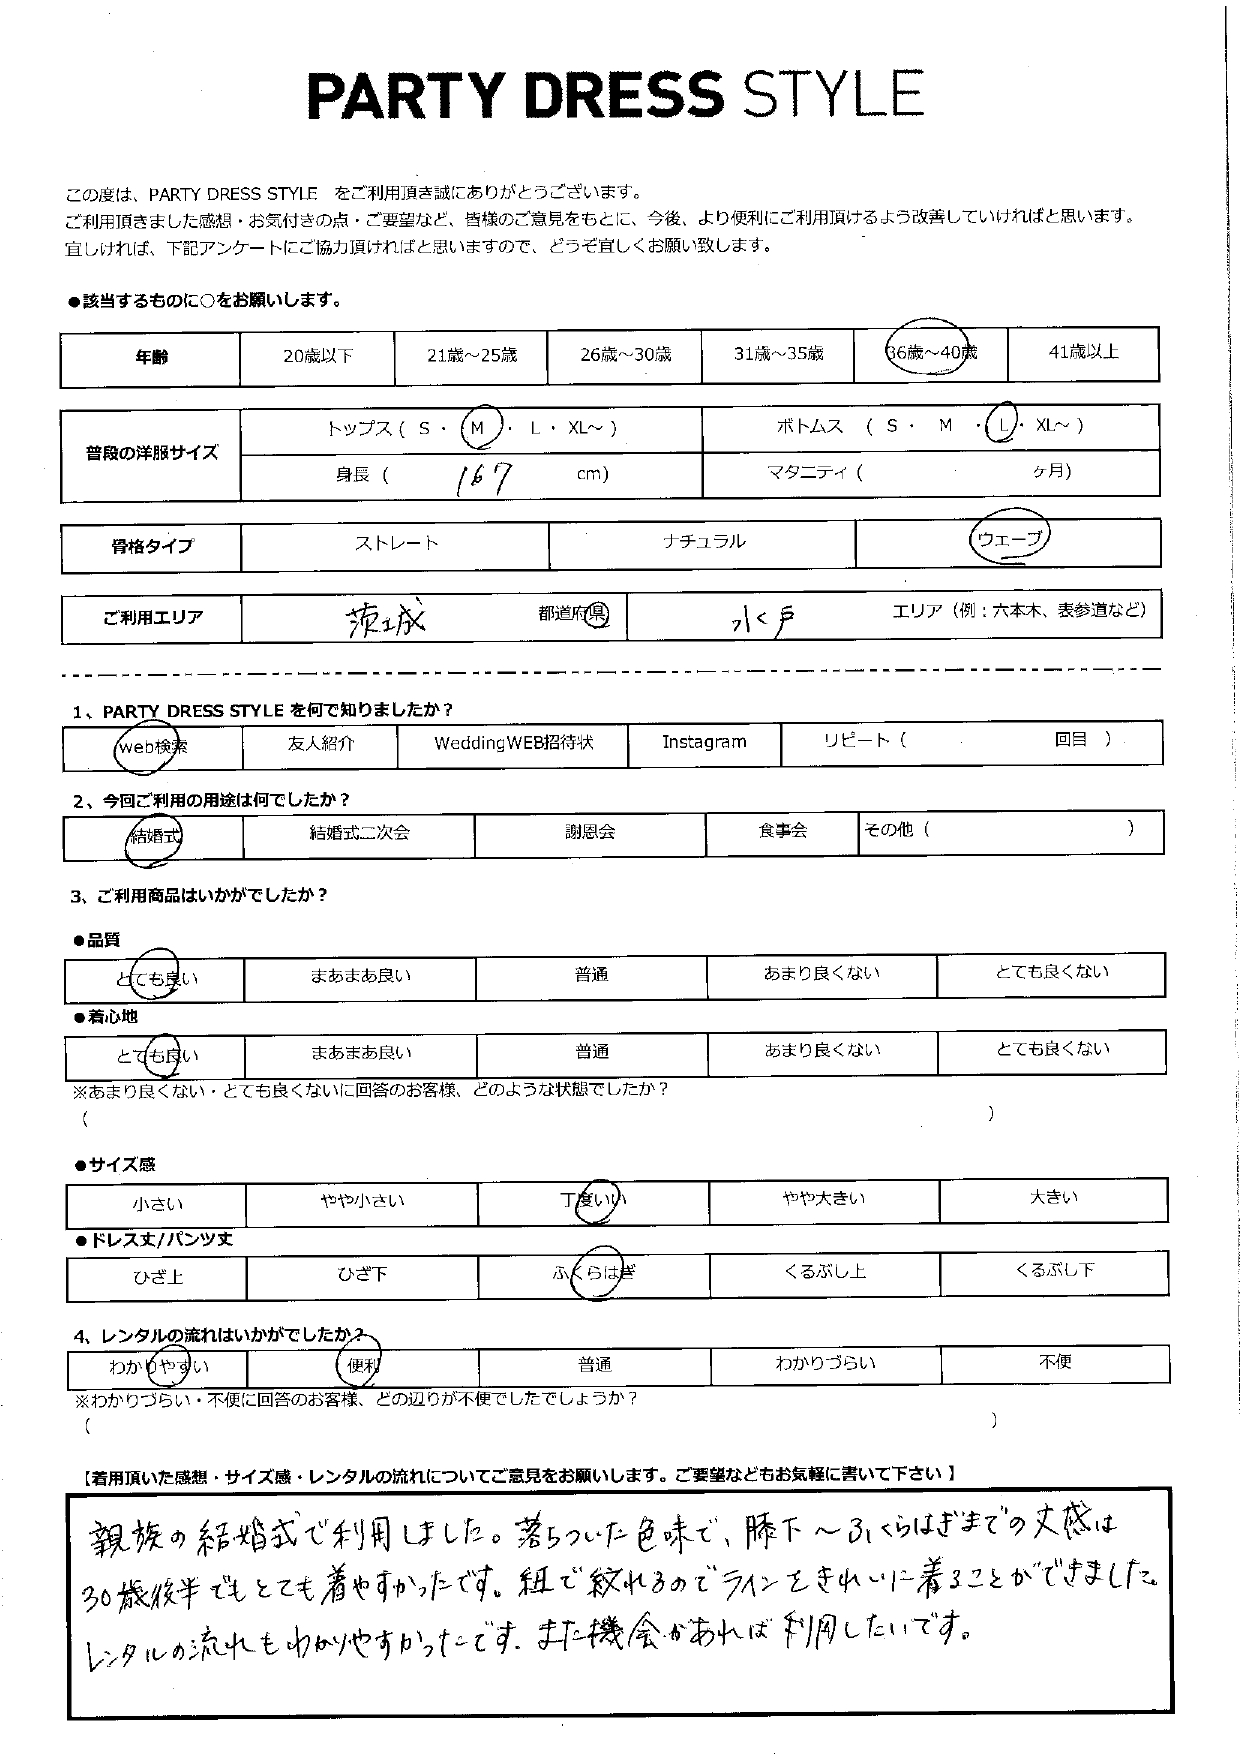 PARTY DRESS STYLE
この度は、PARTY DRESS STYLE をご利用頂き誠にありがとうございます。
ご利用頂きました感想・お気付きの点・ご要望など、皆様のご意見をもとに、今後、より便利にご利用頂けるよう改善していければと思います。
宜しければ、下記アンケートにご協力頂ければと思いますので、どうぞ宜しくお願い致します。
●該当するものに○をお願いします。
年齢 20歳以下 21歳～25歳 26歳～30歳 31歳～35歳 36歳～40歳 41歳以上
普段の洋服サイズ
トップス ( S ・ M ・ L ・ XL～ ) ボトムス ( S ・ M ・ L ・ XL～ )
身長 ( 167 cm) マタニティ ( ヶ月)
骨格タイプ ストレート ナチュラル ウェーブ
ご利用エリア 茨城 都道府県 水戸 エリア (例：六本木、表参道など)
1、PARTY DRESS STYLE を何で知りましたか？
web検索 友人紹介 WeddingWEB招待状 Instagram リピート ( 回目 )
2、今回ご利用の用途は何でしたか？
結婚式 結婚式二次会 謝恩会 食事会 その他 ( )
3、ご利用商品はいかがでしたか？
●品質
とても良い まあまあ良い 普通 あまり良くない とても良くない
●着心地
とても良い まあまあ良い 普通 あまり良くない とても良くない
※あまり良くない・とても良くないに回答のお客様、どのような状態でしたか？
( )
●サイズ感
小さい やや小さい 丁度いい やや大きい 大きい
●ドレス丈/パンツ丈
ひざ上 ひざ下 ふくらはぎ くるぶし上 くるぶし下
4、レンタルの流れはいかがでしたか？
わかりやすい 便利 普通 わかりづらい 不便
※わかりづらい・不便に回答のお客様、どの辺りが不便でしたでしょうか？
( )
【着用頂いた感想・サイズ感・レンタルの流れについてご意見をお願いします。ご要望などもお気軽に書いて下さい】
親族の結婚式で利用しました。落ちついた色味で、膝下～ふくらはぎまでの丈感は
30歳後半でもとても着やすかったです。紐で絞れるのでラインをきれいに着ることができました。
レンタルの流れもわかりやすかったです。また機会があれば利用したいです。